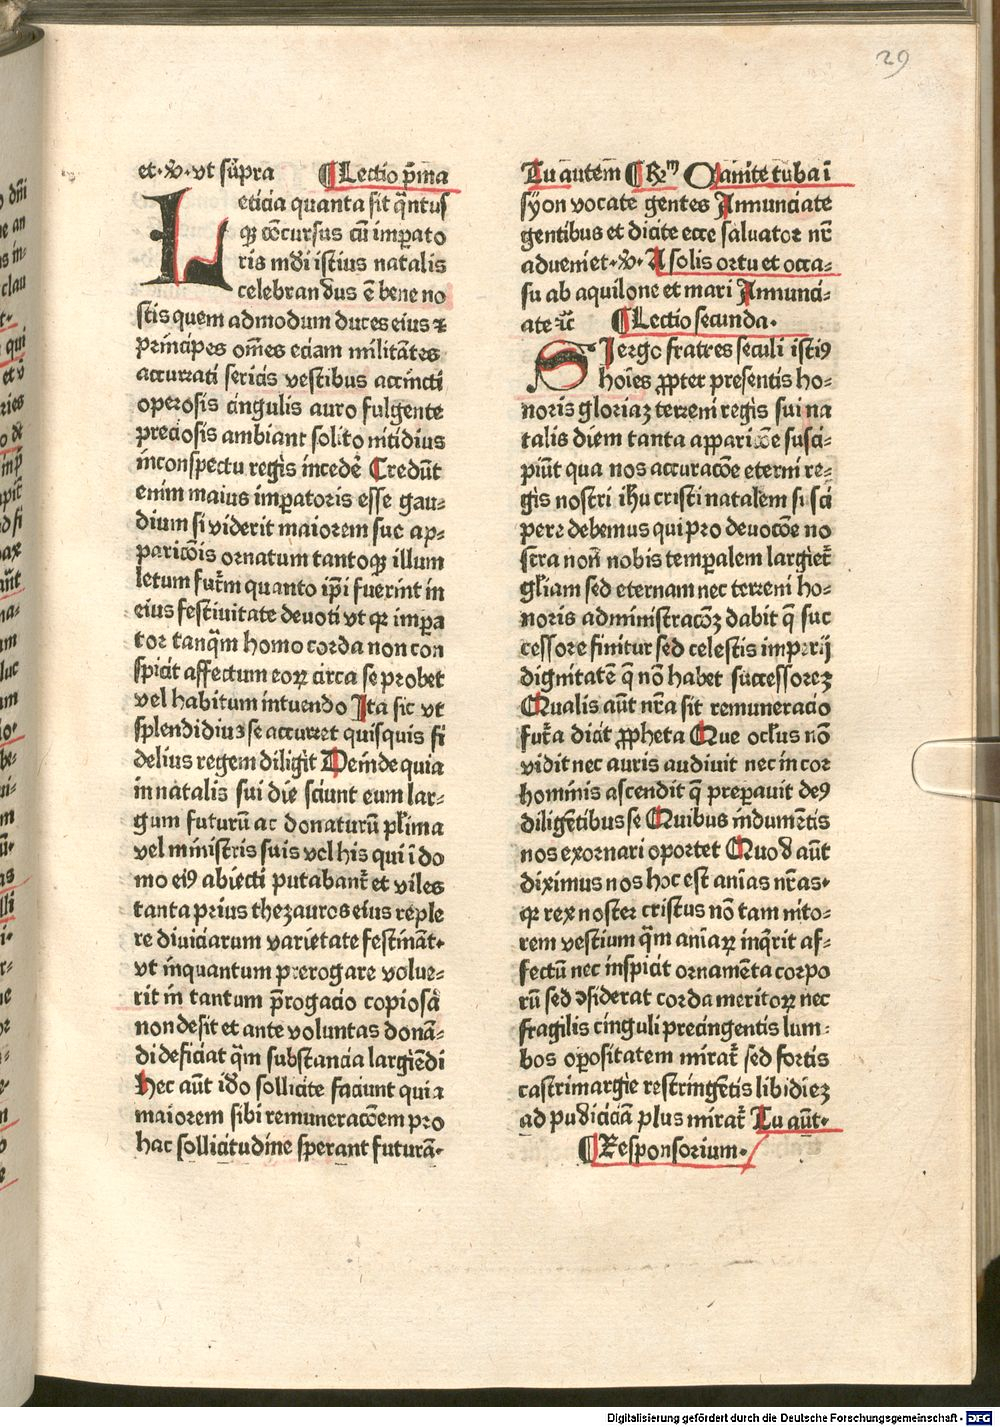 29
et ·v̄· vt sup̄ra ¶ Lectio p̄ma
Leticia quanta sit q̄ntus
qꝫ cōcursus cū imꝑato
ris mūdi istius natalis
celebrandus ē bene no
stis quem admodum duces eius ⁊
principes om̄es eciam militātes
accurrati sericis vestibus accincti
operosis cingulis auro fulgente
preciosis ambiant solito nitidius
inconspectu regis incedē Credūt
enim maius imꝑatoris esse gau⸗
dium si viderit maiorem sue ap⸗
paricōis ornatum tantoqꝫ illum
letum futꝝm quanto ip̄i fuerint in
eius festiuitate deuoti vt qꝛ imꝑa
tor tanq̄m homo corda non con
spicit affectum eoꝝ circa se probet
vel habitum intuendo Ita sic vt
splendidiuꝫ se accurret quisquis fi
delius regem diligit Deinde quia
in natalis sui die sciunt eum lar⸗
gum futurū ac donaturū pl̄ima
vel ministris suis vel his qui ī do
mo eiꝰ abiecti putabant̄ et viles
tanta prius thezauros eius reple
re diuiciarum varietate festināt·
vt inquantum prerogare volue⸗
rit in tantum p̄rogacio copiosā
non desit et ante voluntas donā⸗
di deficiat q̄m substancia largiēdi
Hec aūt id̄o sollicite faciunt quia
maiorem sibi remuneracōem pro
hac sollicitudine sperant futurā·
Tu autem ¶ R̄m Canite tuba ī
syon vocate gentes Annunciate
gentibus et dicite ecce saluator nr̄
adueniet ·v̄· A solis ortu et occa⸗
su ab aquilone et mari Annunci⸗
ate ⁊c̄ ¶ Lectio secunda·
SIergo fratres seculi istiꝰ
hoīes ꝓpter presentis ho⸗
noris gloriaꝫ terreni regis sui na
talis diem tanta apparicōe susci⸗
piūt qua nos accuracōe eterni re⸗
gis nostri ihū cristi natalem susci
pere debemus qui pro deuocōe no
stra non̄ nobis temꝑalem largiet̄
gl̄iam sed eternam nec terreni ho⸗
noris administracōꝫ dabit q̄ suc
cessore finitur sed celestis imperij
dignitatē q̄ nō habet successoreꝫ
Qualis aūt nr̄a sit remuneracio
fut̄a dicit ꝓpheta Que oclꝰs nō
vidit nec auris audiuit nec in cor
hominis ascendit q̄ preꝑauit deꝰ
diligētibus se Quibus indumētis
nos exornari oportet Quod aūt
diximus nos hoc est anīas nr̄as·
qꝛ rex noster cristus nō tam nito⸗
rem vestium q̄m anīaꝝ inq̄rit af⸗
fectū nec inspicit ornamēta corpo
rū sed ↄsiderat corda meritoꝝ nec
fragilis cinguli precingentis lum⸗
bos oꝑositatem mirat̄ sed fortis
castrimargie restringētis libidieꝫ
ad pudiciciā plus mirat̄ Tu aūt·
¶ Responsorium·
Digitalisierung gefördert durch die Deutsche Forschungsgemeinschaft - DFG